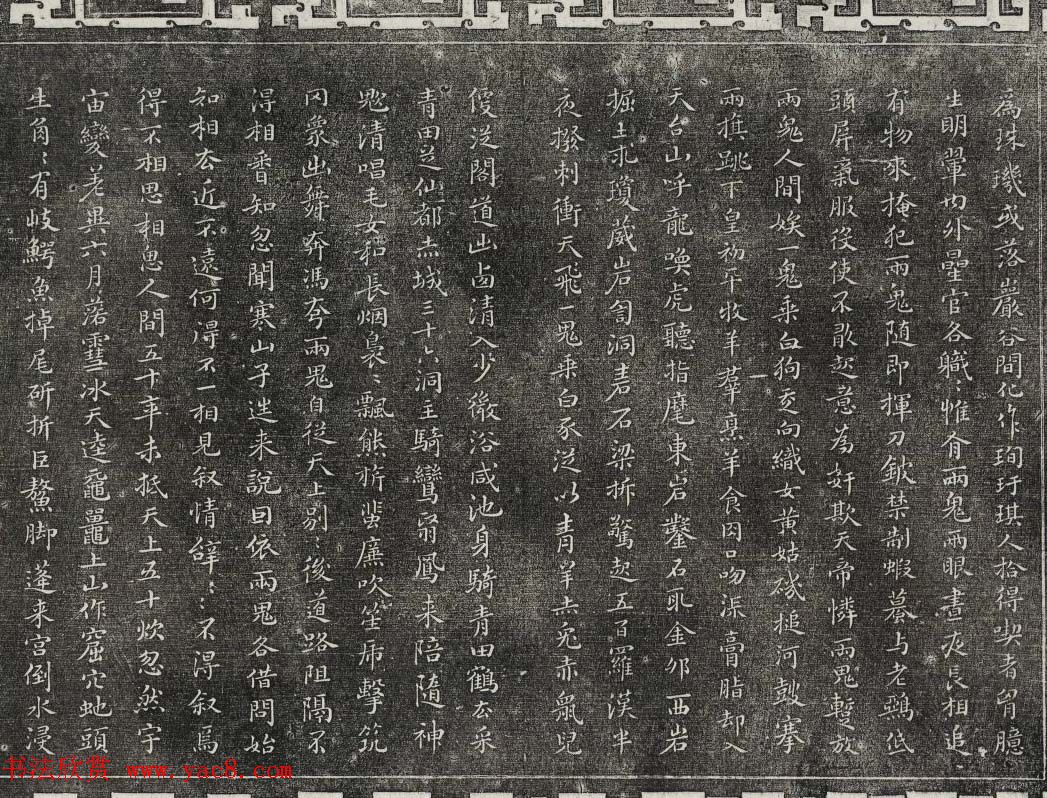 為珠璣或落巖谷間化作珣玗琪人拾得喫者胷臆
生明翬内外曐官各職〻惟有兩鬼兩眼晝夜長相追
有物來掩犯兩鬼隨即揮刀鈹禁制蝦蟇与老鵶低
頭屏氣服役使不敢起意為奸欺天帝憐兩鬼蹔放
兩鬼人間娭一鬼乘白狗走向織女黃姑磯槌河鼓搴
兩旗跳下皇初平牧羊羣烹羊食肉口吻流膏脂却入
天台山呼龍喚虎聽指麾東岩鑿石取金卯西岩
掘土求瓊葳岩訇洞砉石梁拆驚起五百羅漢半
夜撥刺衝天飛一鬼乘白豕從以青羊赤兔赤鼠兒
便從閣道出西清入少微浴咸池身騎青田鶴去采
青田芝仙都赤城三十六洞主騎鸞翳鳳来陪隨神
鬼清唱毛女和長烟裊〻飄熊旂蜚廉吹笙虎擊筑
罔象出舞奔馮夷兩鬼自從天上別〻後道路阻隔不
得相
知忽聞寒山子迯来說曰依兩鬼各借問始
知相去近不遠何得不一相見叙情辤〻〻不得叙焉
得不相思相思人間五十年未抵天上五十炊忽然宇
宙變差異六月落雪冰天逵黿鼉上山作窟穴虵頭
生角〻有岐鰐魚掉尾斫折巨鰲脚蓬来宫倒水浸
书法欣赏 www.yac8.com